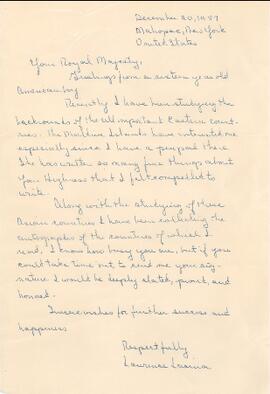 December 20, 1957
Mahopac, New York
United States
Your Royal Majesty,
Greetings from a sixteen year old
American boy
Recently I have been studying the
backrounds of the all important Eastern coun-
tries. The Maldive Islands have interested me
especially since I have a pen pal there
She has written so many fine things about
Your Highness that I felt compelled to
write.
Along with the studying of these
Asian countries I have been collecting the
autographs of the countries of which I
read. I know how busy you are, but if you
could take time out to send me your sig-
nature I would be deeply elated, proud, and
honored.
Sincere wishes for further success and
happiness
Respectfully,
Laurence